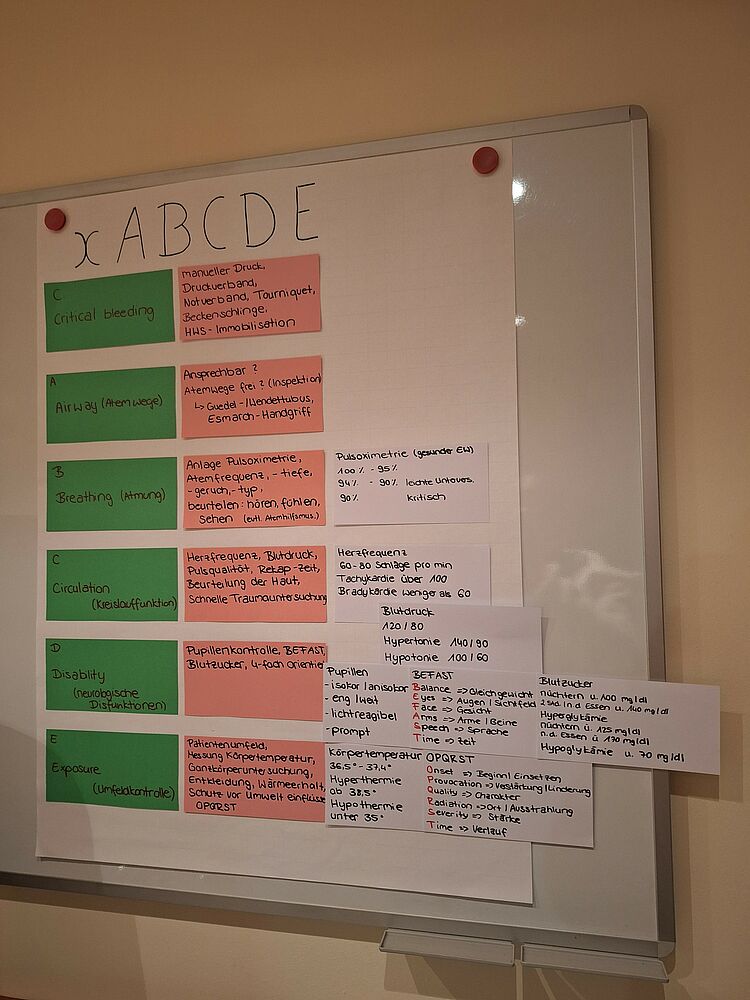 x ABCDE
C
Critical bleeding
manueller Druck,
Druckverband,
Notverband, Tourniquet,
Beckenschlinge,
HWS-Immobilisation
A
Airway (Atemwege)
Ansprechbar ?
Atemwege frei ? (Inspektion)
↳ Guedel-/Wendeltubus,
Esmarch-Handgriff
B
Breathing (Atmung)
Anlage Pulsoximetrie,
Atemfrequenz, -tiefe,
-geruch, -typ,
beurteilen: hören, fühlen,
sehen (evtl. Atemhilfsmus.)
Pulsoximetrie (gesunder EW)
100% - 95%
94% - 90% leichte Untervs.
90% kritisch
C
Circulation
(Kreislauffunktion)
Herzfrequenz, Blutdruck,
Pulsqualität, Rekap-Zeit,
Beurteilung der Haut,
Schnelle Traumauntersuchung
Herzfrequenz
60-80 Schläge pro min
Tachykardie über 100
Bradykardie weniger als 60
Blutdruck
120/80
Hypertonie 140/90
Hypotonie 100/60
D
Disablity
(neurologische
Disfunktionen)
Pupillenkontrolle, BEFAST,
Blutzucker, 4-fach orientier
Pupillen
- isokor/anisokor
- eng/weit
- lichtreagibel
- prompt
BEFAST
Balance => Gleichgewicht
Eyes => Augen/Sichtfeld
Face => Gesicht
Arms => Arme/Beine
Speech => Sprache
Time => Zeit
Blutzucker
nüchtern u. 100 mg/dl
2 Std. n.d. Essen u. 140 mg/dl
Hyperglykämie
nüchtern ü. 125 mg/dl
n.d. Essen ü 170 mg/dl
Hypoglykämie u. 70 mg/dl
E
Exposure
(Umfeldkontrolle)
Patientenumfeld,
Messung Körpertemperatur,
Ganzkörperuntersuchung,
Entkleidung, Wärmeerhalt,
Schutz vor Umwelt einflüsse
OPQRST
Körpertemperatur
36,5° - 37,4°
Hyperthermie
ob 38,5°
Hypothermie
unter 35°
OPQRST
Onset => Beginn/Einsetzen
Provocation => Verstärkung/Linderung
Quality => Charakter
Radiation => Ort/Ausstrahlung
Severity => Stärke
Time => Verlauf